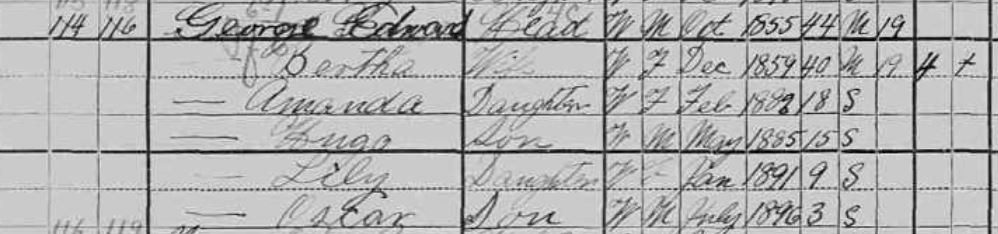 114 116 George Edward Head W M Oct 1855 44 M 19
Bertha Wife W F Dec 1859 40 M 19 4 4
— Amanda Daughter W F Feb 1882 18 S
— Hugo Son W M May 1885 15 S
— Lily Daughter W F Jan 1891 9 S
— Oscar Son W M July 1896 3 S
116 119